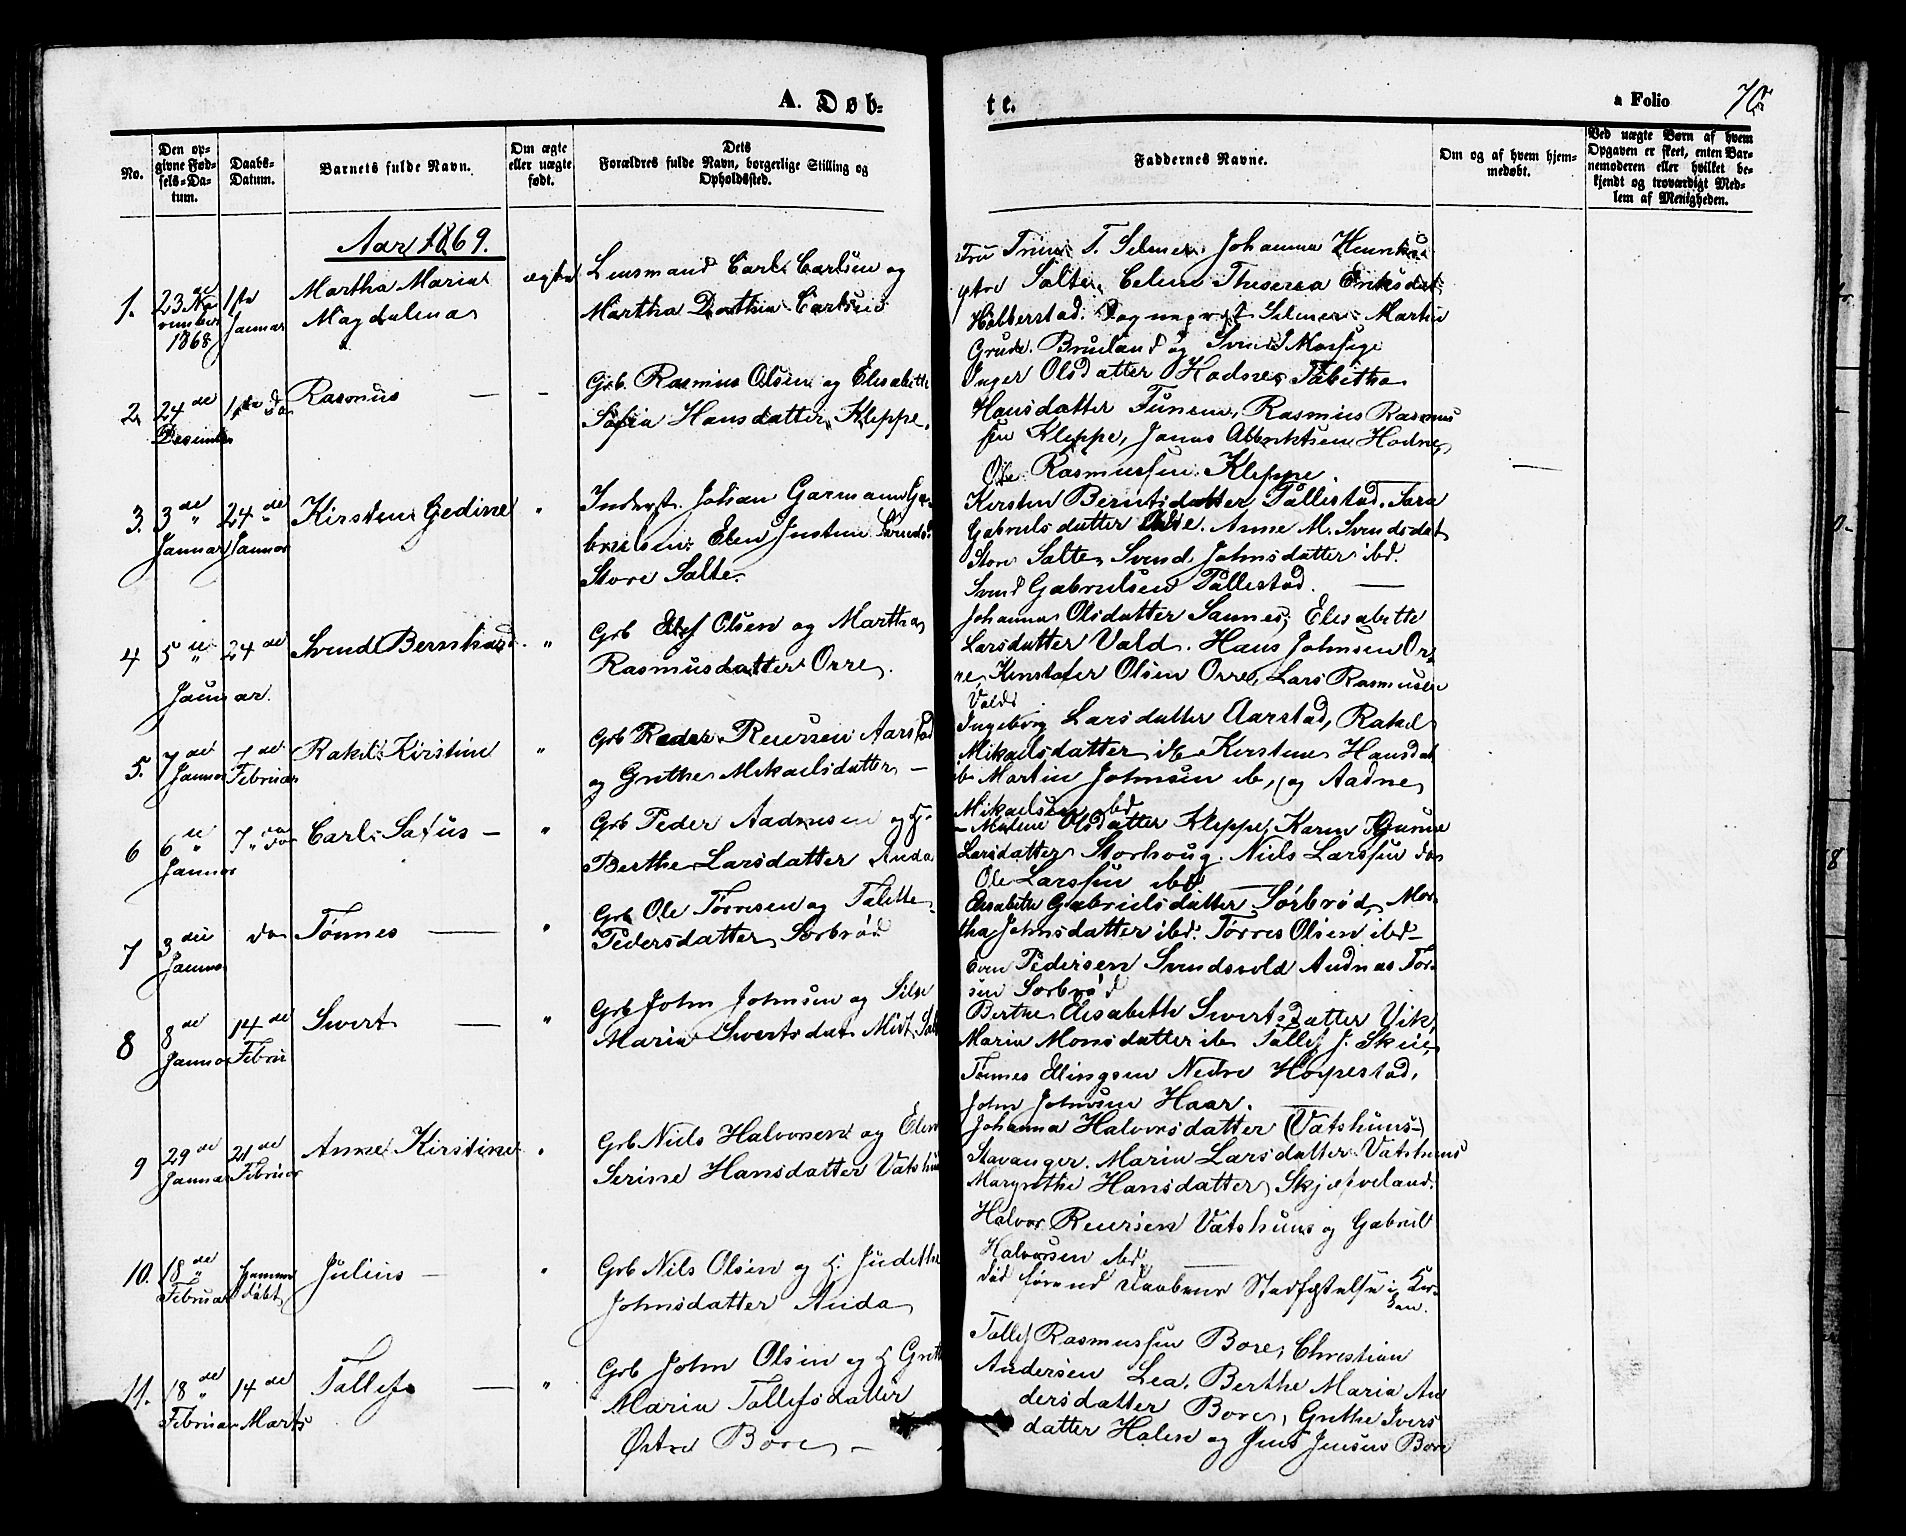 A. Døb-
te.
a Folio
No.
Den op-
givne Fød-
sels-Da-
tum.
Daabs-
Datum.
Barnets fulde Navn.
Om ægte
eller uægte
født.
Dets
Forældres fulde Navn, borgerlige Stilling og
Opholdssted.
Faddernes Navne.
Om og af hvem hjem-
medøbt.
Ved uægte Børn af hvem
Opgaven er skeet, enten Bar-
nemoderen eller hvilket be-
kjendt og troværdigt Med-
lem af Menigheden.
Aar 1869.
1.
23de No-
vember
1868
1ste
Januar
Martha Maria
Magdalena
ægte
Lensmand Carl Carlsen og
Martha Dorthia Carlsen
Fru Trine T. Selmer. Johanna Henriks-
Salte, Celene Theserea Eriksdat
Halberstad. Selmer Martin
Grude. Brueland og Svend Mossige
2.
24de
Desember
1ste do
Rasmus —
-
Grb. Rasmus Olsen og Elisabethe
Sofia Hansdatter Kleppe.
Inger Olsdatter Hodne, Tabitha
Hansdatter Tunem, Rasmus Rasmus
sen Kleppe, Jonas Albriktsen Hodne,
Ole Rasmussen Kleppe.
3.
3de "
Januar
24de
Januar
Kirsten Gedine
"
Inderst. Johan Garmann Ga-
brielsen. Elen Justine Svends.
Store Salte.
Kersten Berntsdatter Tallestad. Sara
Gabrielsdatter. Anne M. Svendsdat
Store Salte, Svend Johnsdatter ibd.
Svend Gabrielsen Tallestad. —
4
5te "
Januar.
24de
Svend Bernhard
"
Grb Olsen og Martha
Rasmusdatter Orre.
Johanna Olsdatter Sannes, Elisabethe
Larsdatter Vold. Hans Johnsen Or-
re, Kristofer Olsen Orre, Lars Rasmusen
Vold
5.
7de
Januar
7de
Februar
Rakel Kirstine
"
Grb Peder Reiersen Aarstad
og Grethe Mikaelsdatter —
Ingeborg Larsdatter Aarstad, Rakel
Mikaelsdatter ib Kirstene Hansdat
ib Martin Johnsen ib, og Aadne
Mikaelsen ibd
6
6te "
Januar
7de do
Carl Satus —
"
Grb Peder Aadnesen og H.
Berthe Larsdatter Anda
Malene Olsdatter Kleppe, Karen Gunne
Larsdatter Storhoug. Niels Larssen do
Ole Larssen ibd
7
3die
Januar
do
Tønnes —
"
Grb Ole Torresen og Talette
Pedersdatter Sørbrød
Elisabethe Gabrielsdatter Sørbrød, Mar-
tha Johnsdatter ibd. Torres Olsen ibd-
Sven Pedersen Svendsvold Audnas Tor-
sen Sørbrød
8
8de
Januar
14de
Februar
Sivert —
"
Grb John Johnsen og Silse
Maria Sivertsdat Midt Salt
Berthe Elisabethe Sivertsdatter Vik,
Maria Monsdatter ib Tallef J. Skeie,
Tønnes Ellingsen Nedre Høyestad,
John Johnsen Haar.
9
29de
Januar
21de
Februar
Anne Kirstine
"
Grb Niels Halvorsen og Elen
Serine Hansdatter Vatshus
Johanna Halvorsdatter (Vatshuus)
Stavanger. Maria Larsdatter Vatshuus
Margrethe Hansdatter Skjæfveland.
Halvor Reiersen Vatshuus og Gabriel
Halvorsen ibd.
10.
18de "
Februar
hjemme
døbt
Julius —
"
Grb Nils Olsen og H. Judethe
Johnsdatter Anda
død førend daabens Stadfæstelse i Kir-
ken.
11.
18de "
Februar
14de
Marts
Tallef —
"
Grb John Olsen og H Grethe
Maria Tallefsdatter
Østre Bore —
Tallef Rasmussen Bore, Christian
Andersen Lea. Berthe Maria An
dersdatter Bore, Grethe Ivers
datter Halen og Jens Jensen Bore